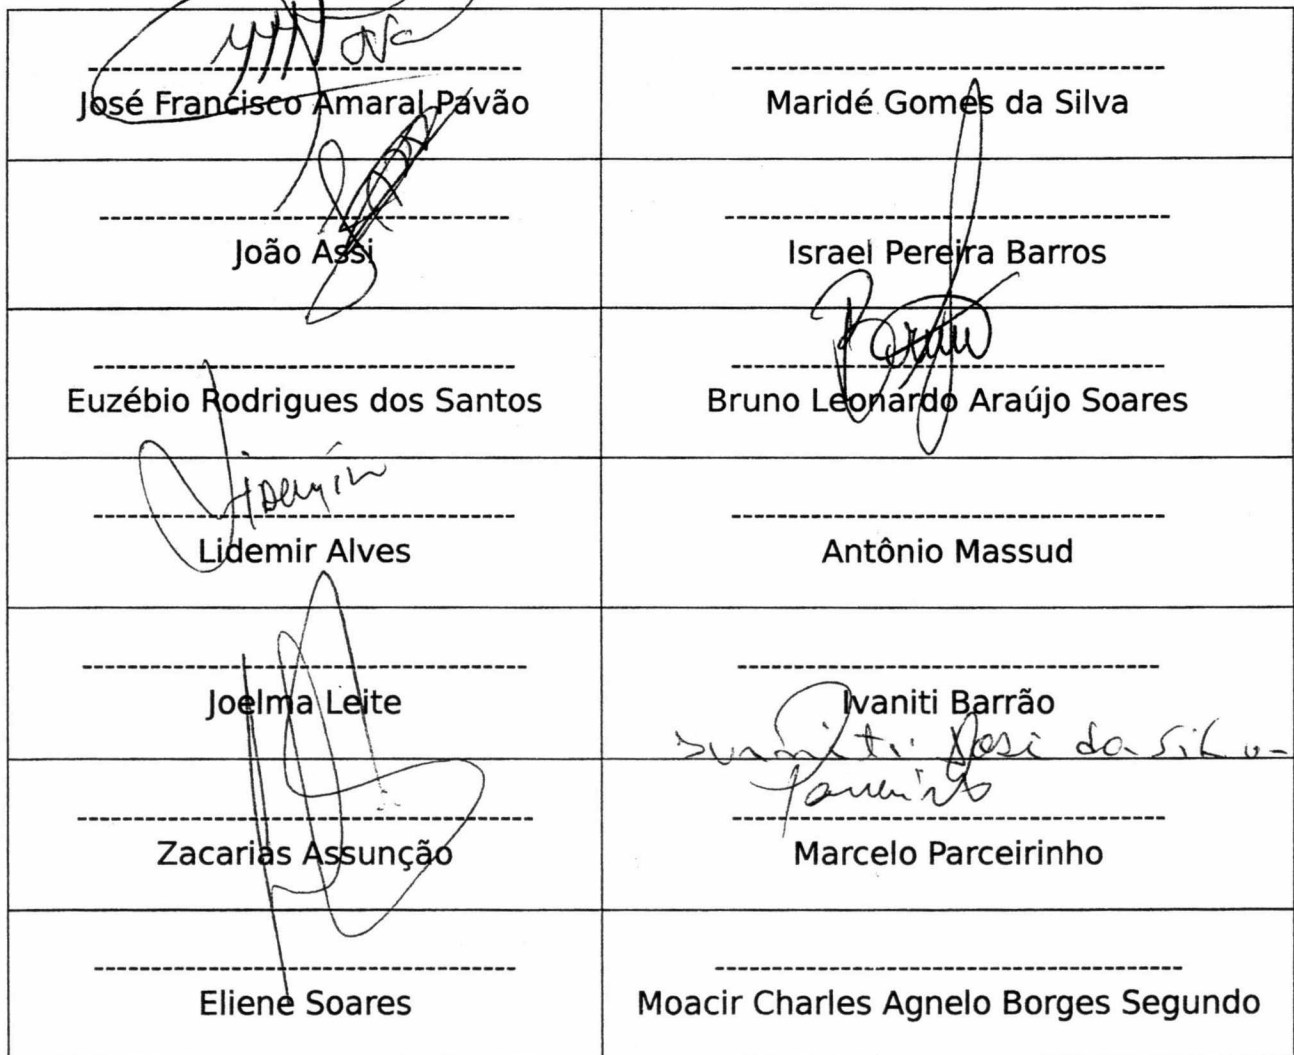 José Francisco Amaral Pavão
Maridé Gomes da Silva
João Assi
Israel Pereira Barros
Bruno
Euzébio Rodrigues dos Santos
Bruno Leonardo Araújo Soares
Lidemir Alves
Antônio Massud
Joelma Leite
Ivaniti Barrão
da Silva
Zacarias Assunção
Marcelo Parceirinho
Eliene Soares
Moacir Charles Agnelo Borges Segundo